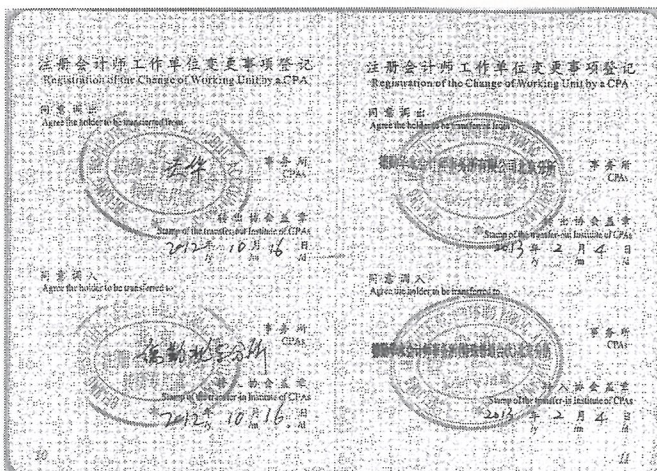 注册会计师工作单位变更事项登记
Registration of the Change of Working Unit by a CPA
同意调出
Agree the holder to be transferred from
事务所
CPAs
转出协会盖章
Stamp of the transfer-out Institute of CPAs
2012年 10月 16日
/y /m /d
同意调入
Agree the holder to be transferred to
德勤北京分所
事务所
CPAs
转入协会盖章
Stamp of the transfer-in Institute of CPAs
2012年 10月 16日
/y /m /d
10
注册会计师工作单位变更事项登记
Registration of the Change of Working Unit by a CPA
同意调出
Agree the holder to be transferred from
德勤华永会计师事务所有限公司北京分所
事务所
CPAs
转出协会盖章
Stamp of the transfer-out Institute of CPAs
2013年 2月 4日
/y /m /d
同意调入
Agree the holder to be transferred to
德勤华永会计师事务所(特殊普通合伙)北京分所
事务所
CPAs
转入协会盖章
Stamp of the transfer-in Institute of CPAs
2013年 2月 4日
/y /m /d
11